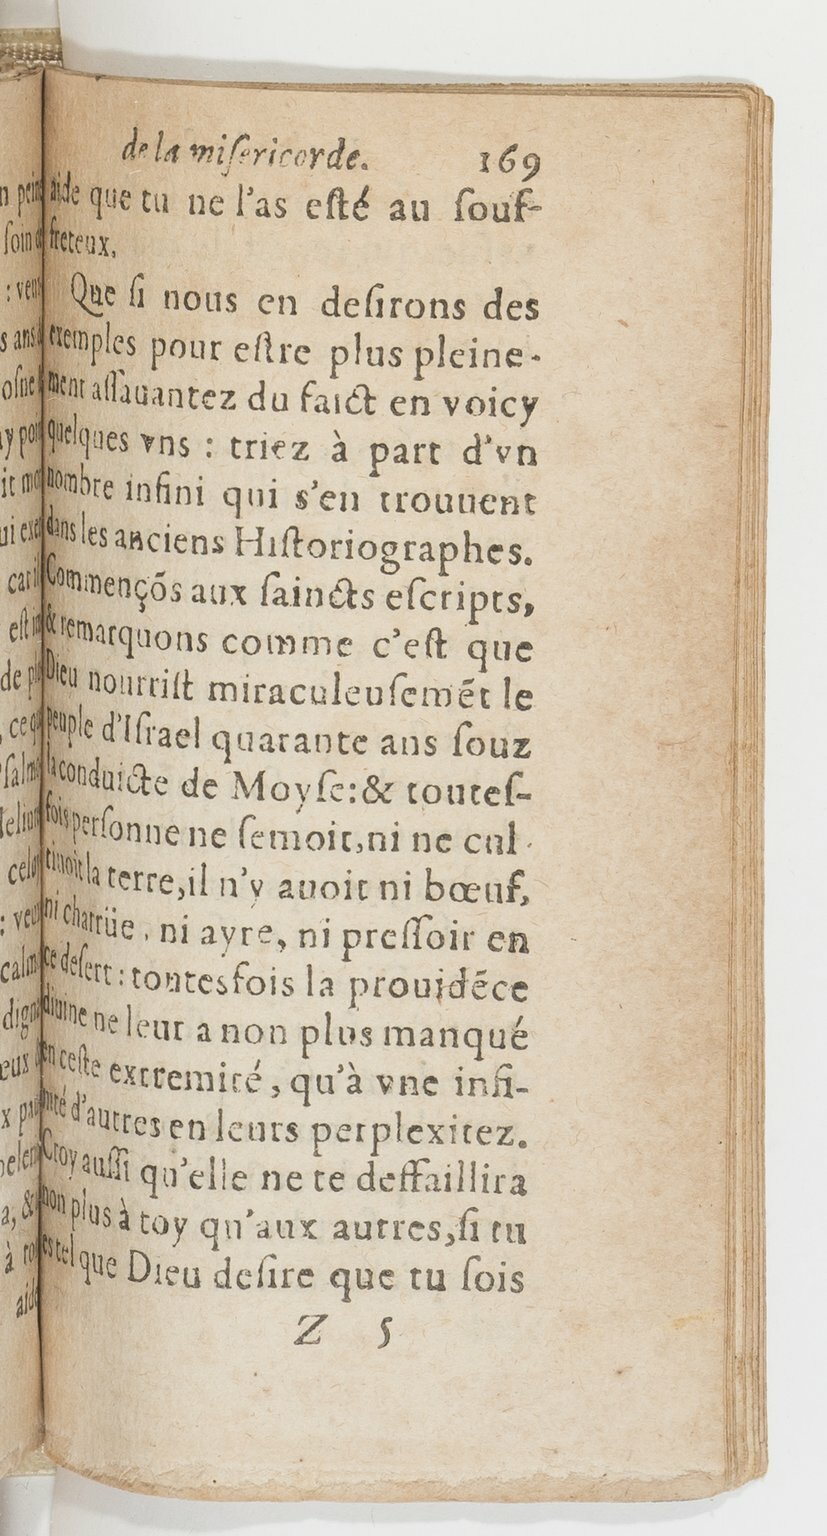 de la miſericorde. 169
aide que tu ne l'as eſté au ſouf-
freteux.
Que ſi nous en deſirons des
exemples pour eſtre plus pleine-
ment aſſauantez du faict en voicy
quelques vns : triez à part d'vn
nombre infini qui s'en trouuent
dans les anciens Hiſtoriographes.
Commençõs aux ſaincts eſcripts,
& remarquons comme c'eſt que
Dieu nourriſt miraculeuſemẽt le
peuple d'Iſrael quarante ans ſouz
la conduicte de Moyſe: & toutes-
fois perſonne ne ſemoit, ni ne cul-
tiuoit la terre, il n'y auoit ni bœuf,
ni charrüe, ni ayre, ni preſſoir en
ce deſert : toutesfois la prouidẽce
diuine ne leur a non plus manqué
en ceſte extremité, qu'à vne infi-
nité d'autres en leurs perplexitez.
Croy auſſi qu'elle ne te deffaillira
non plus à toy qu'aux autres, ſi tu
es tel que Dieu deſire que tu ſois
Z 5